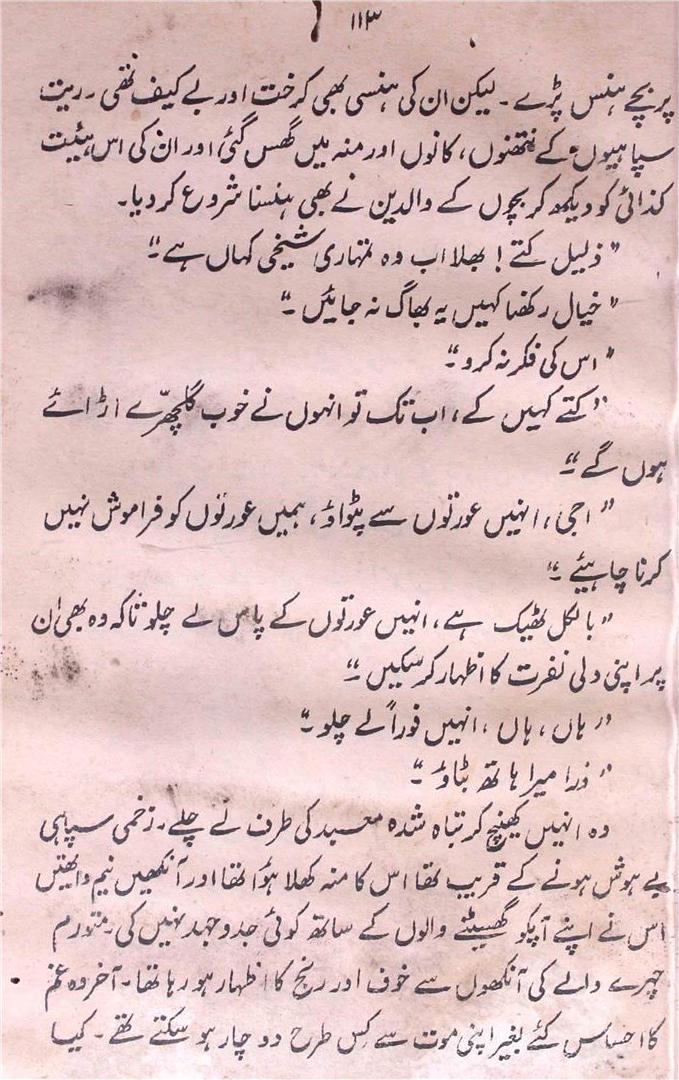 ۱۱۳
پر بچے ہنس پڑے۔ لیکن ان کی ہنسی بھی کرخت اور بے کیف تھی۔ ریت
سپاہیوں کے نتھنوں، کانوں اور منہ میں گھس گئی اور ان کی اس ہیئت
کذائی کو دیکھ کر بچوں کے والدین نے بھی ہنسنا شروع کر دیا۔
”ذلیل کتے! بھلا اب وہ تمہاری شیخی کہاں ہے۔“
”خیال رکھنا کہیں یہ بھاگ نہ جائیں۔“
”اس کی فکر نہ کرو۔“
”کتے کہیں کے، اب تک تو انہوں نے خوب گلچھرّے اڑائے
ہوں گے۔“
”اجی، انہیں عورتوں سے پٹواؤ، ہمیں عورتوں کو فراموش نہیں
کرنا چاہیئے۔“
”بالکل ٹھیک ہے، انہیں عورتوں کے پاس لے چلو تاکہ وہ بھی ان
پر اپنی دلی نفرت کا اظہار کر سکیں۔“
”ہاں، ہاں، انہیں فوراً لے چلو۔“
”ذرا میرا ہاتھ بٹاؤ۔“
وہ انہیں کھینچ کر تباہ شدہ معبد کی طرف لے چلے۔ زخمی سپاہی
بے ہوش ہونے کے قریب تھا اس کا منہ کھلا ہوا تھا اور آنکھیں نیم وا تھیں
اس نے اپنے آپکو گھسیٹنے والوں کے ساتھ کوئی جدوجہد نہیں کی۔ متورم
چہرے والے کی آنکھوں سے خوف اور رنج کا اظہار ہو رہا تھا۔ آخر وہ غم
کا احساس کئے بغیر اپنی موت سے کس طرح دو چار ہو سکتے تھے۔ کیا